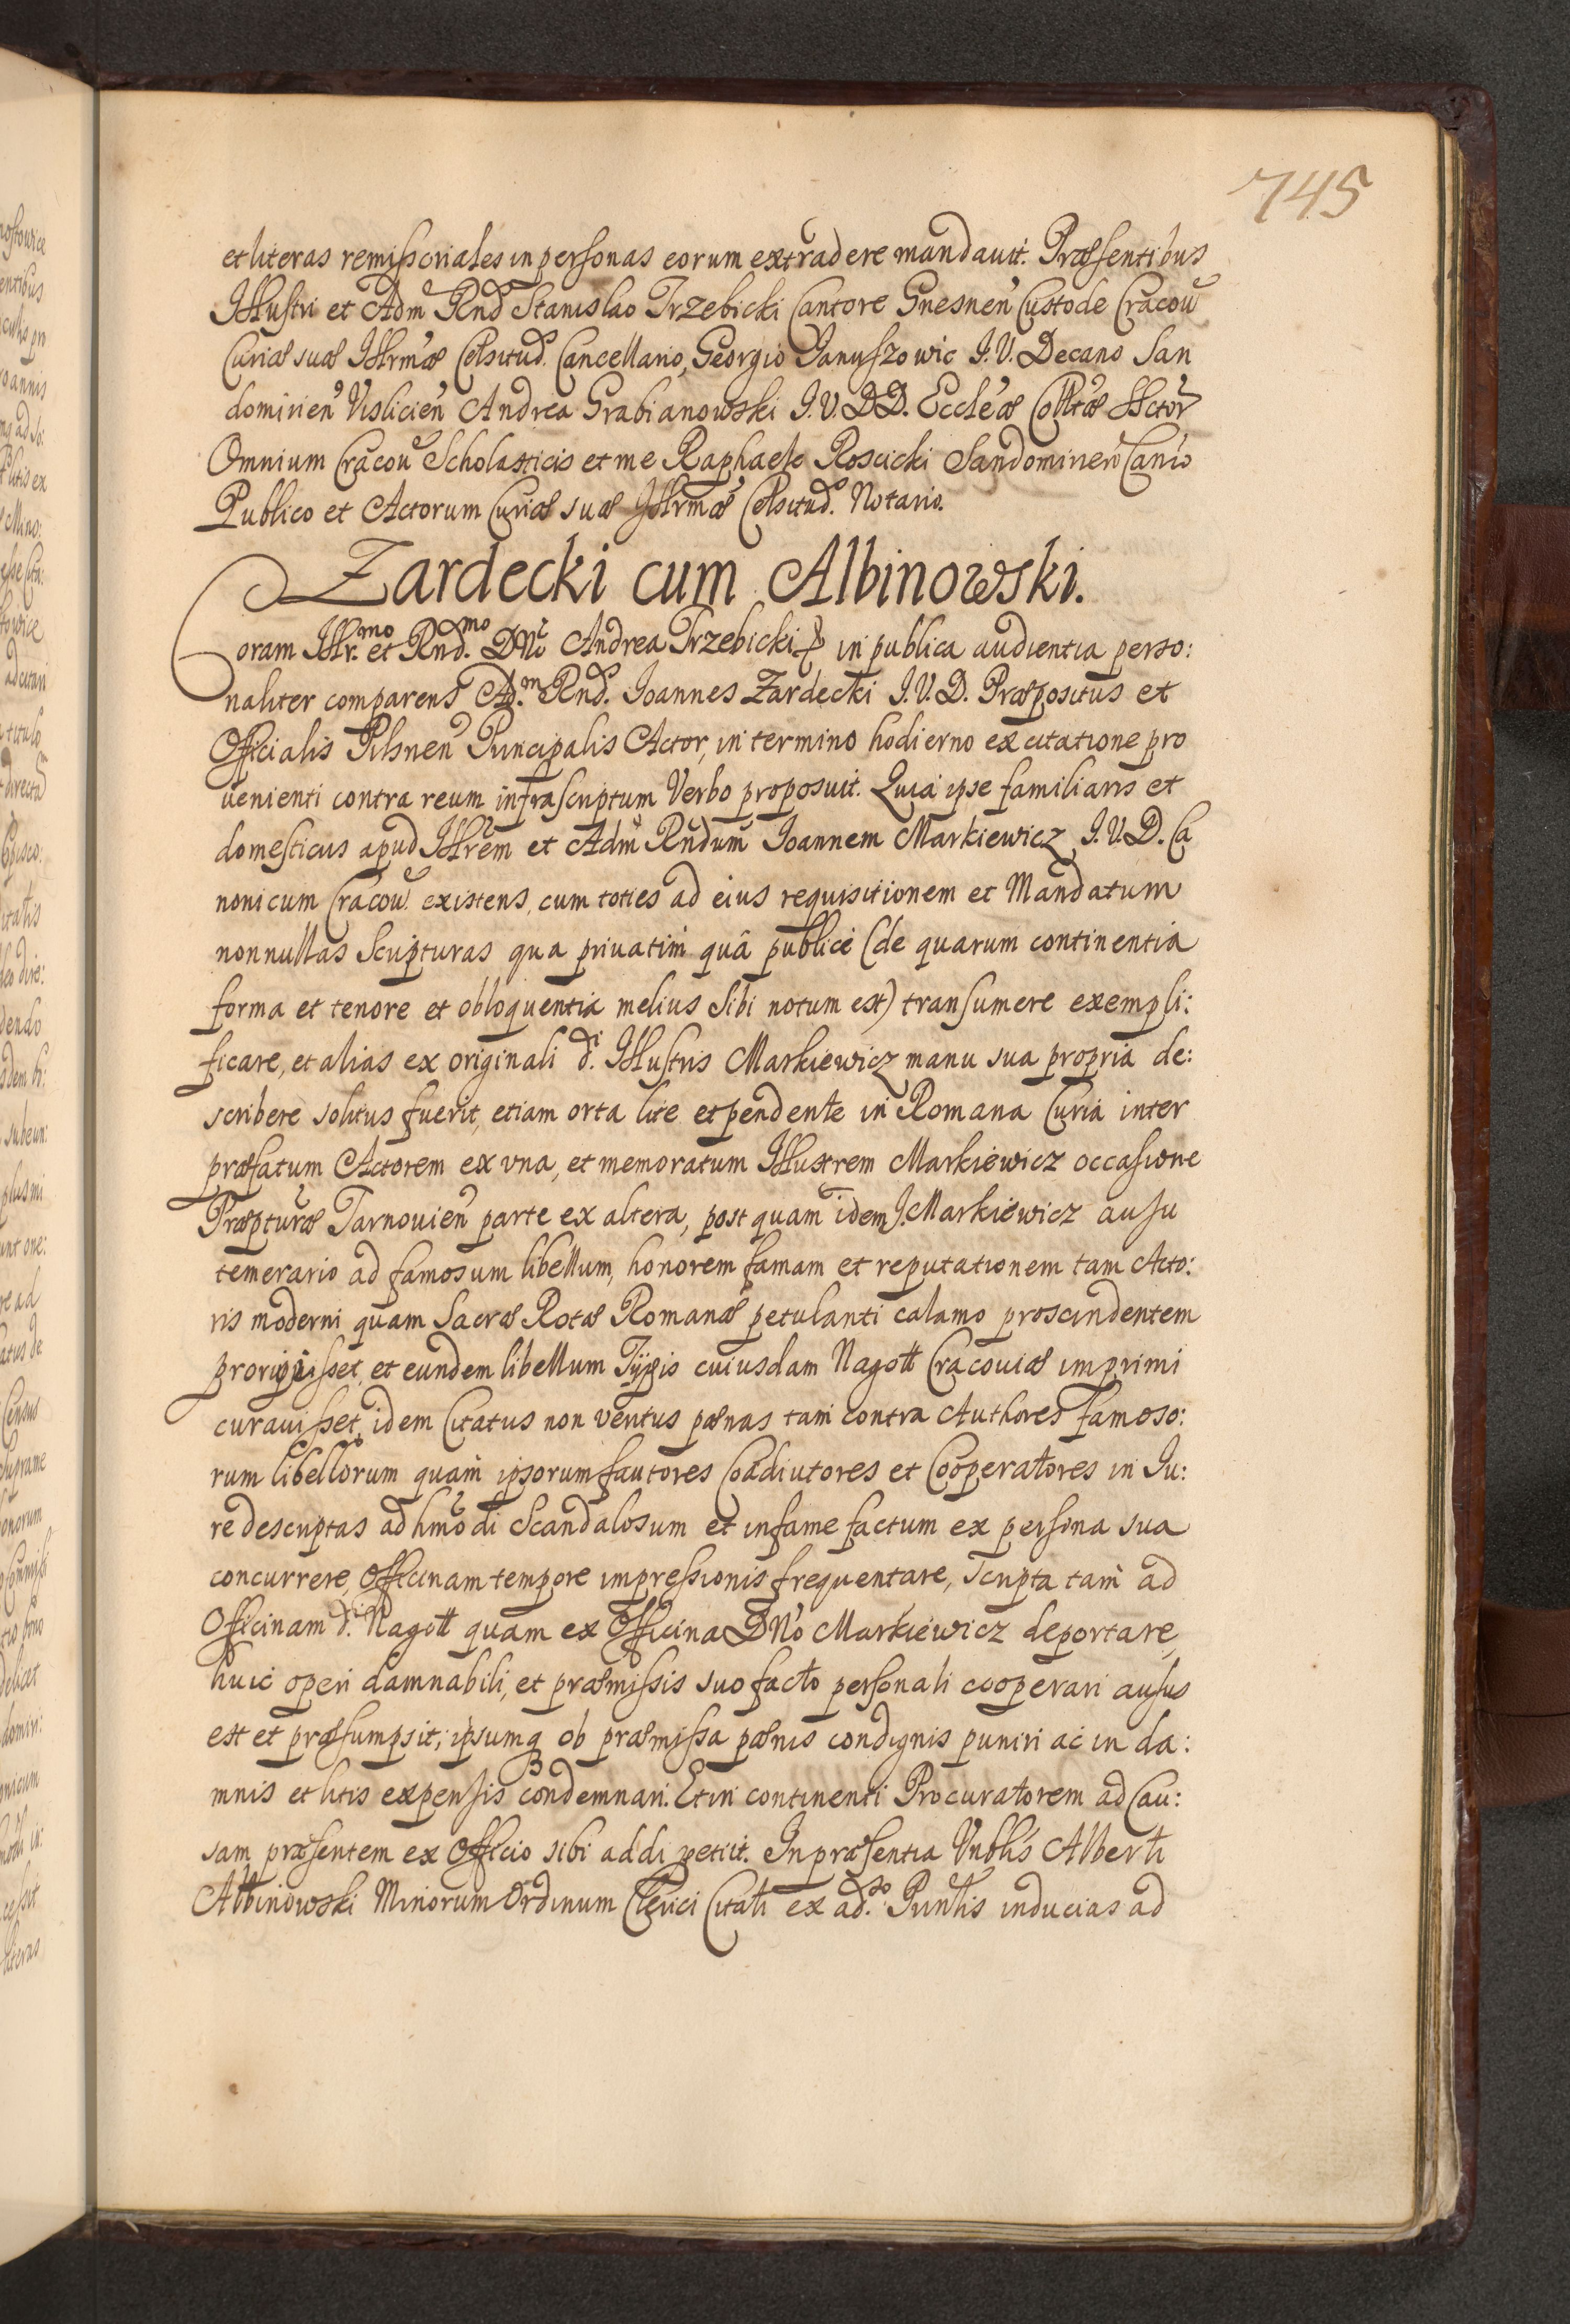 745
et literas remissoriales in personas eorum extradere mandauit. Præsentibus
Illustri et Adm Rnd Stanislao Trzebicki Cantore Gnesnen Custode Cracou
Curiæ suæ Illrmæ Celsitud. Cancellario, Georgio Januszowic J. V. Decano San
domirien Vislicien Andrea Grabianowski J. V. DD. Eccleæ Colltæ SSctor
Omnium Cracou Scholasticis et me Raphaele Roscicki Sandomirien Canco
Publico et Actorum Curiæ suæ Illrmæ Celsitud. Notario.
Zardecki cum Albinowski.
Coram Illr.mo et Rnd.mo DNo Andrea Trzebicki & in publica audientia perso:
naliter comparens Ad.m Rnd. Joannes Zardecki J. V. D. Præpositus et
Officialis Pilsnen Principalis Actor, in termino hodierno ex citatione pro
uenienti contra reum infrascriptum Verbo proposuit. Quia ipse familiaris et
domesticus apud Illrem et Adm Rndum Joannem Markiewicz J. V. D. Ca
nonicum Cracou. existens, cum toties ad eius requisitionem et Mandatum
nonnullas Scripturas qua priuatim quâ publicè (de quarum continentia
forma et tenore et obloquentia melius sibi notum est) transumere exempli:
ficare, et alias ex originali d.i Illustris Markiewicz manu sua propria de:
scribere solitus fuerit, etiam orta lite et pendente in Romana Curia inter
præfatum Actorem ex vna, et memoratum Illustrem Markiewicz occasione
Præpturæ Tarnouien parte ex altera, post quam idem J. Markiewicz ausu
temerario ad famosum libellum, honorem famam et reputationem tam Acto:
ris moderni quam Sacræ Rotæ Romanæ petulanti calamo proscindentem
prorupisset, et eundem libellum Typis cuiusdam Nagott Cracouiæ imprimi
curauisset, idem Citatus non veritus pænas tam contra Authores famoso:
rum libellorum quam ipsorum fautores Coadiutores et Cooperatores in Ju:
re descriptas ad hmodi Scandalosum et infame factum ex persona sua
concurrere, Officinam tempore impressionis frequentare, scripta tam ad
Officinam d.i Nagott quam ex Officina DNo Markiewicz deportare,
huic operi damnabili, et præmissis suo facto personali cooperari ausus
est et præsumpsit; ipsumq ob præmissa pænis condignis puniri ac in da:
mnis et litis expensis condemnari. Et in continenti Procuratorem ad Cau:
sam præsentem ex Officio sibi addi petiit. In præsentia Vnblis Alberti
Albinowski Minorum Ordinum Clerici Citati ex ad.so Prinlis inducias ad